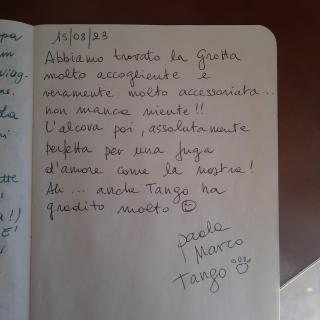 15/08/23
Abbiamo trovato la Grotta
molto accogliente e
veramente molto accessoriata...
non manca niente!!
L'alcova poi, assolutamente
perfetta per una fuga
d'amore come la nostra!
Ah... anche Tango ha
gradito molto
paola
Marco
Tango